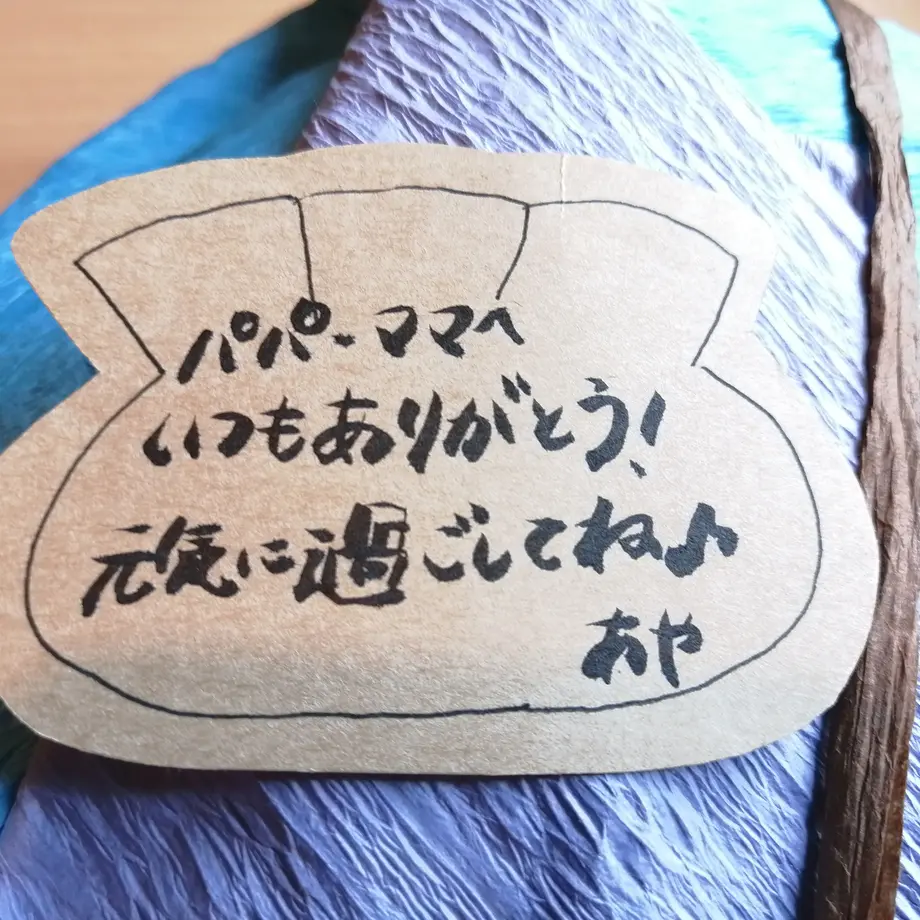 パパ・ママへ
いつもありがとう!
元気に過ごしてね♪
あや